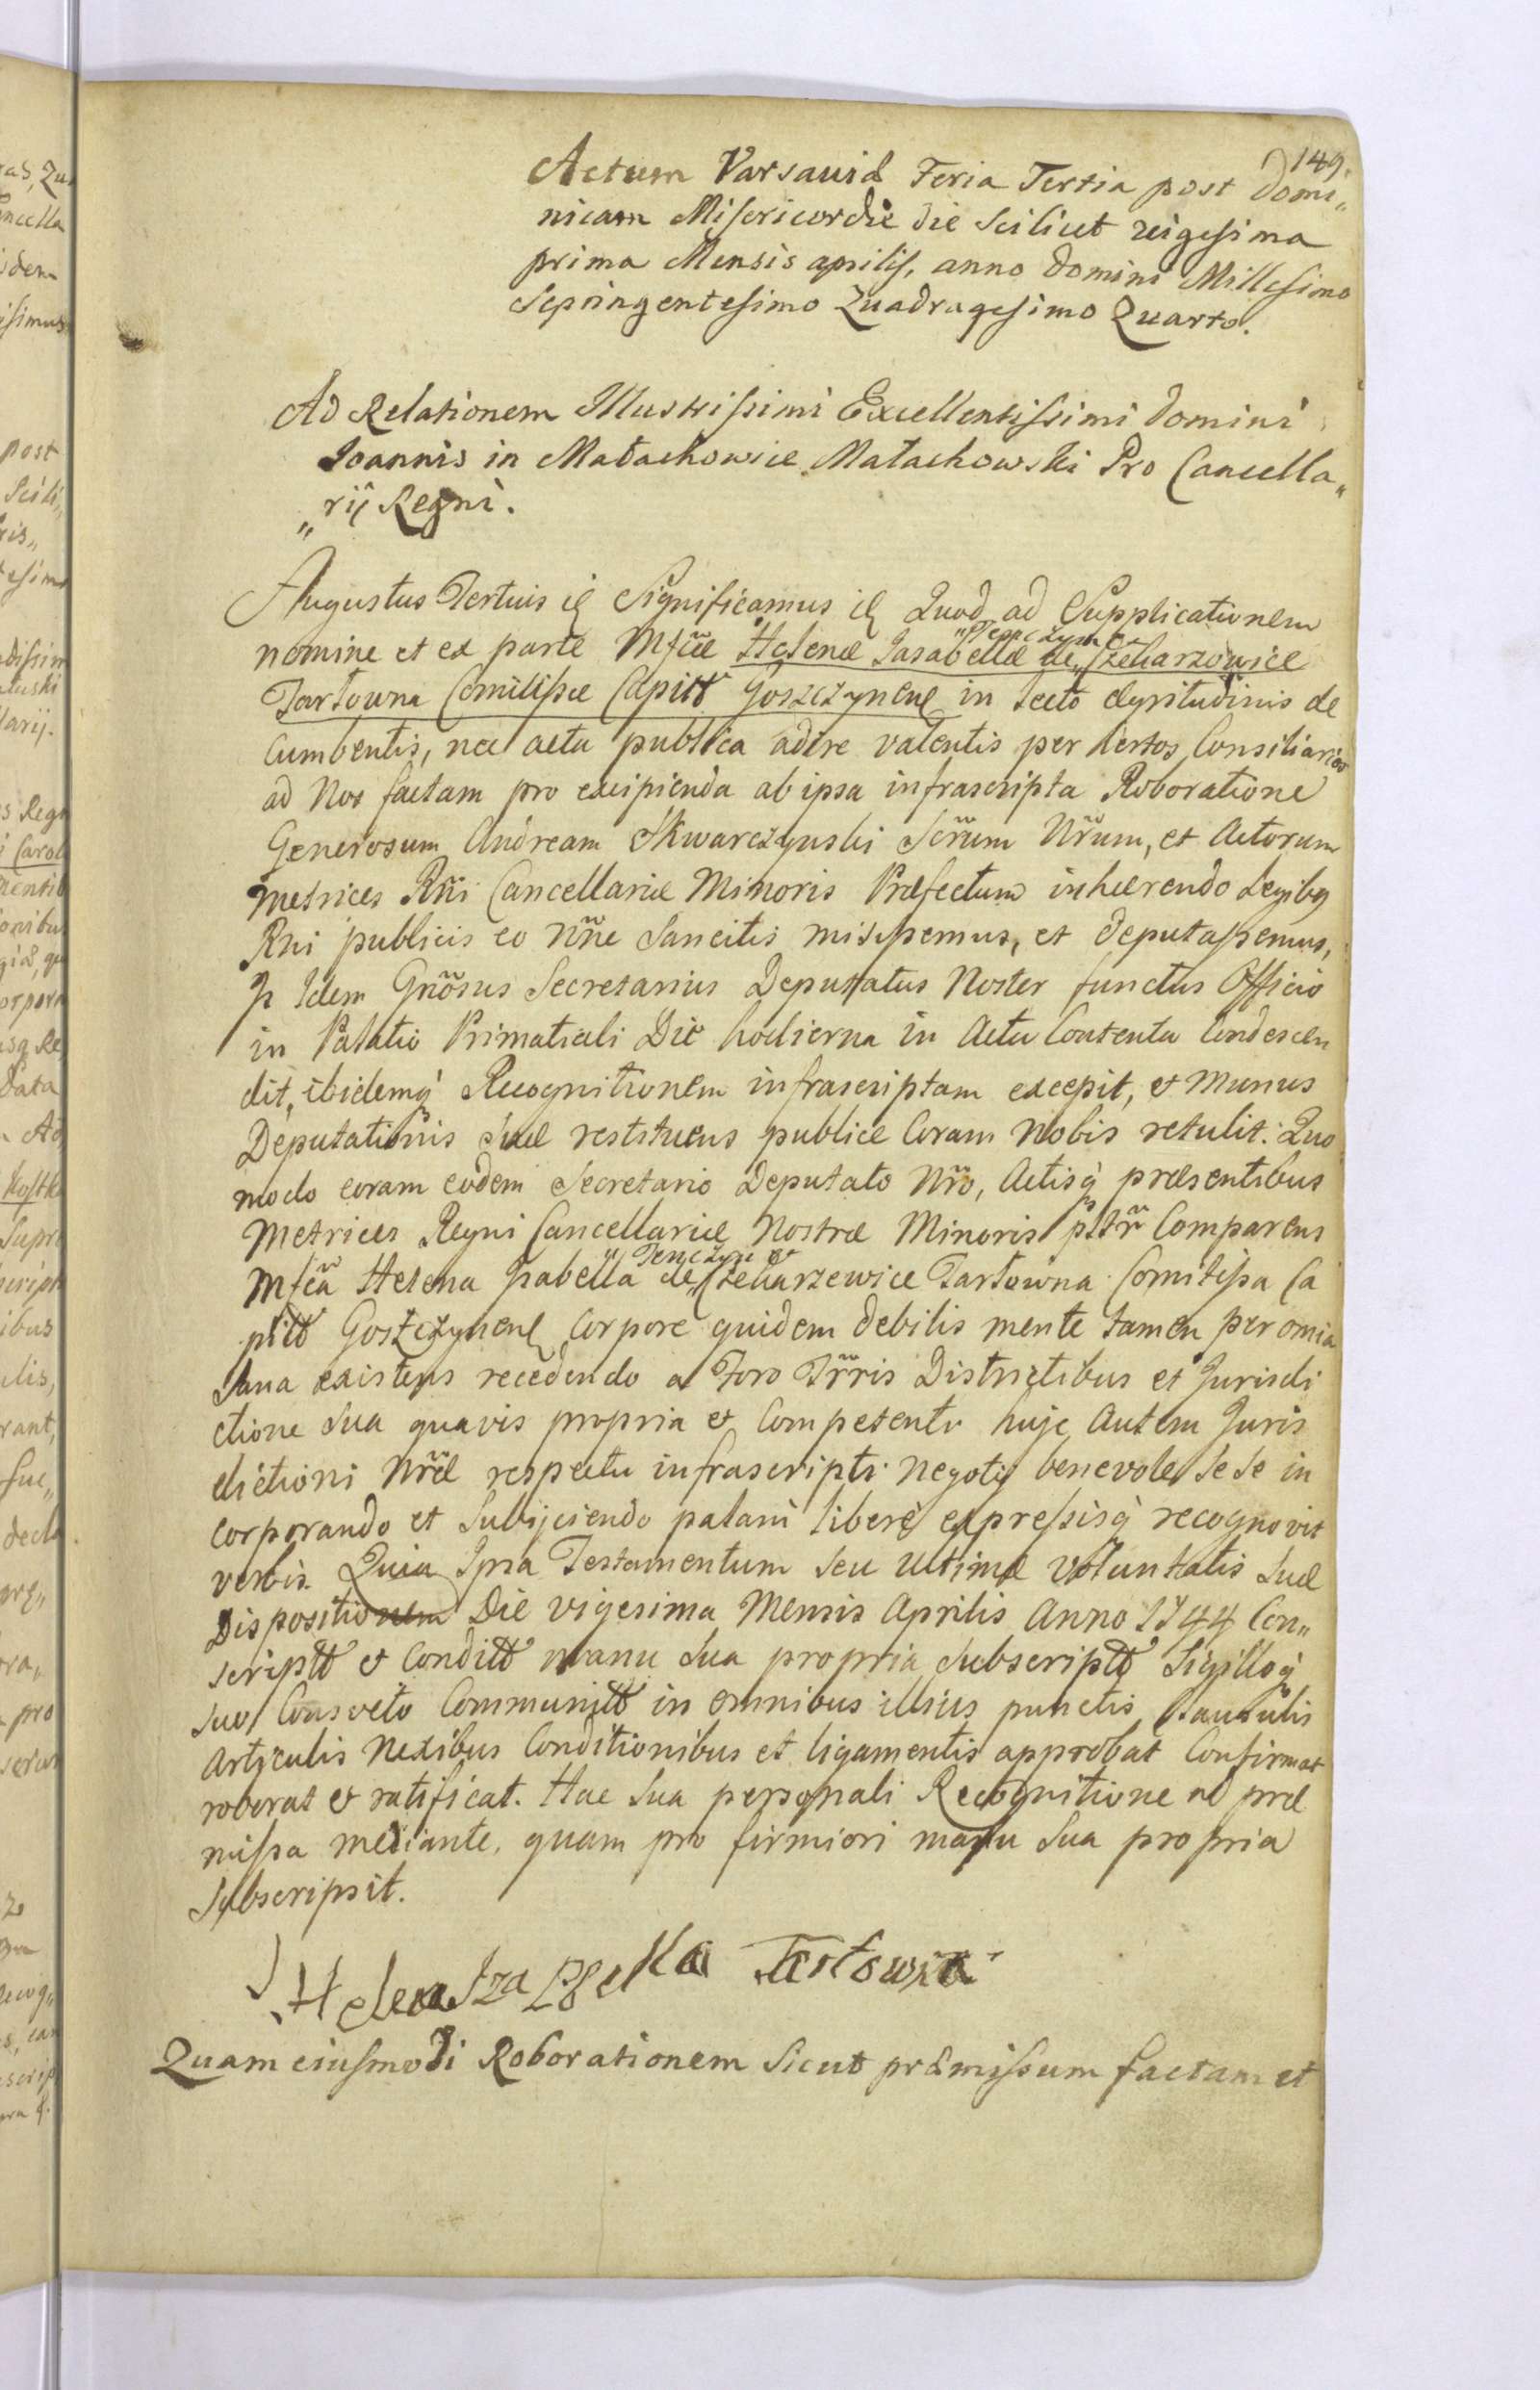 149.
Actum Varsaviæ Feria Tertia post Domi„
nicam Misericordiæ die Scilicet vigesima
prima Mensis aprilis, anno Domini Millesimo
Septingentesimo Quadragesimo Quarto.
Ad Relationem Illustrissimi Excellentissimi Domini
Joannis in Małachowice Małachowski Pro Cancella„
„rij Regni.
Augustus Tertius Significamus Quod ad Supplicationem
nomine et ex parte Mfcæ Helenæ Jasabellæ de „Tenczyn et„ Czekarzowice
Tartowna Comitissæ Capitt Goszczynens in lecto ægritudinis de
cumbentis, nec acta publica adire valentis per certos Consiliarios
ad Nos factam pro excipienda ab ipsa infrascripta Roboratione
Generosum Andream Skwarczynski Secrum Nrum, et Actorum
metrices Rni Cancellariæ Minoris Præfectum inhærendo Legibq
Rni publicis eo Nne Sancitis misissemus, et deputassemus,
Idem Gnosus Secretarius Deputatus Noster functus Officio
in Palatio Primatiali Die hodierna in Actu Contenta Condescen
dit, ibidemq Recognitionem infrascriptam excepit, et munus
Deputationis Suæ restituens publice Coram Nobis retulit: Quo
modo coram eodem Secretario Deputato Nro, Actisq præsentibus
Metrices Regni Cancellariæ Nostræ Minoris pstr Comparens
Mfca Helena Jzabella de „Tenczyn et„ Czekarzewice Tartowna Comitissa Ca
pitt Goszczynens Corpore quidem debilis mente tamen per omia
Sana existens recedendo a Foro Trris Districtibus et Jurisdi
ctione Sua quavis propria et Competenti huic autem Juris
dictioni Nræ respectu infrascripti Negotij benevole Se Se in
corporando et Subijciendo palam libere expressisq recognovit
verbis. Quia Ipsa Testamentum seu ultimæ Voluntatis Suæ
Dispositionem Die vigesima Mensis Aprilis Anno 1744 Con„
scriptt et Conditt manu Sua propria Subscriptt Sigilloq
suo Consveto Communitt in omnibus illius punctis Clausulis
Articulis Nexibus Conditionibus et ligamentis approbat Confirmat
roborat et ratificat. Hac Sua personali Recognitione ad præ
missa mediante, quam pro firmiori manu Sua propria
Subscripsit.
Helena Izabella Tarłowna
Quam eiusmodi Roborationem Sicut præmissum factam et